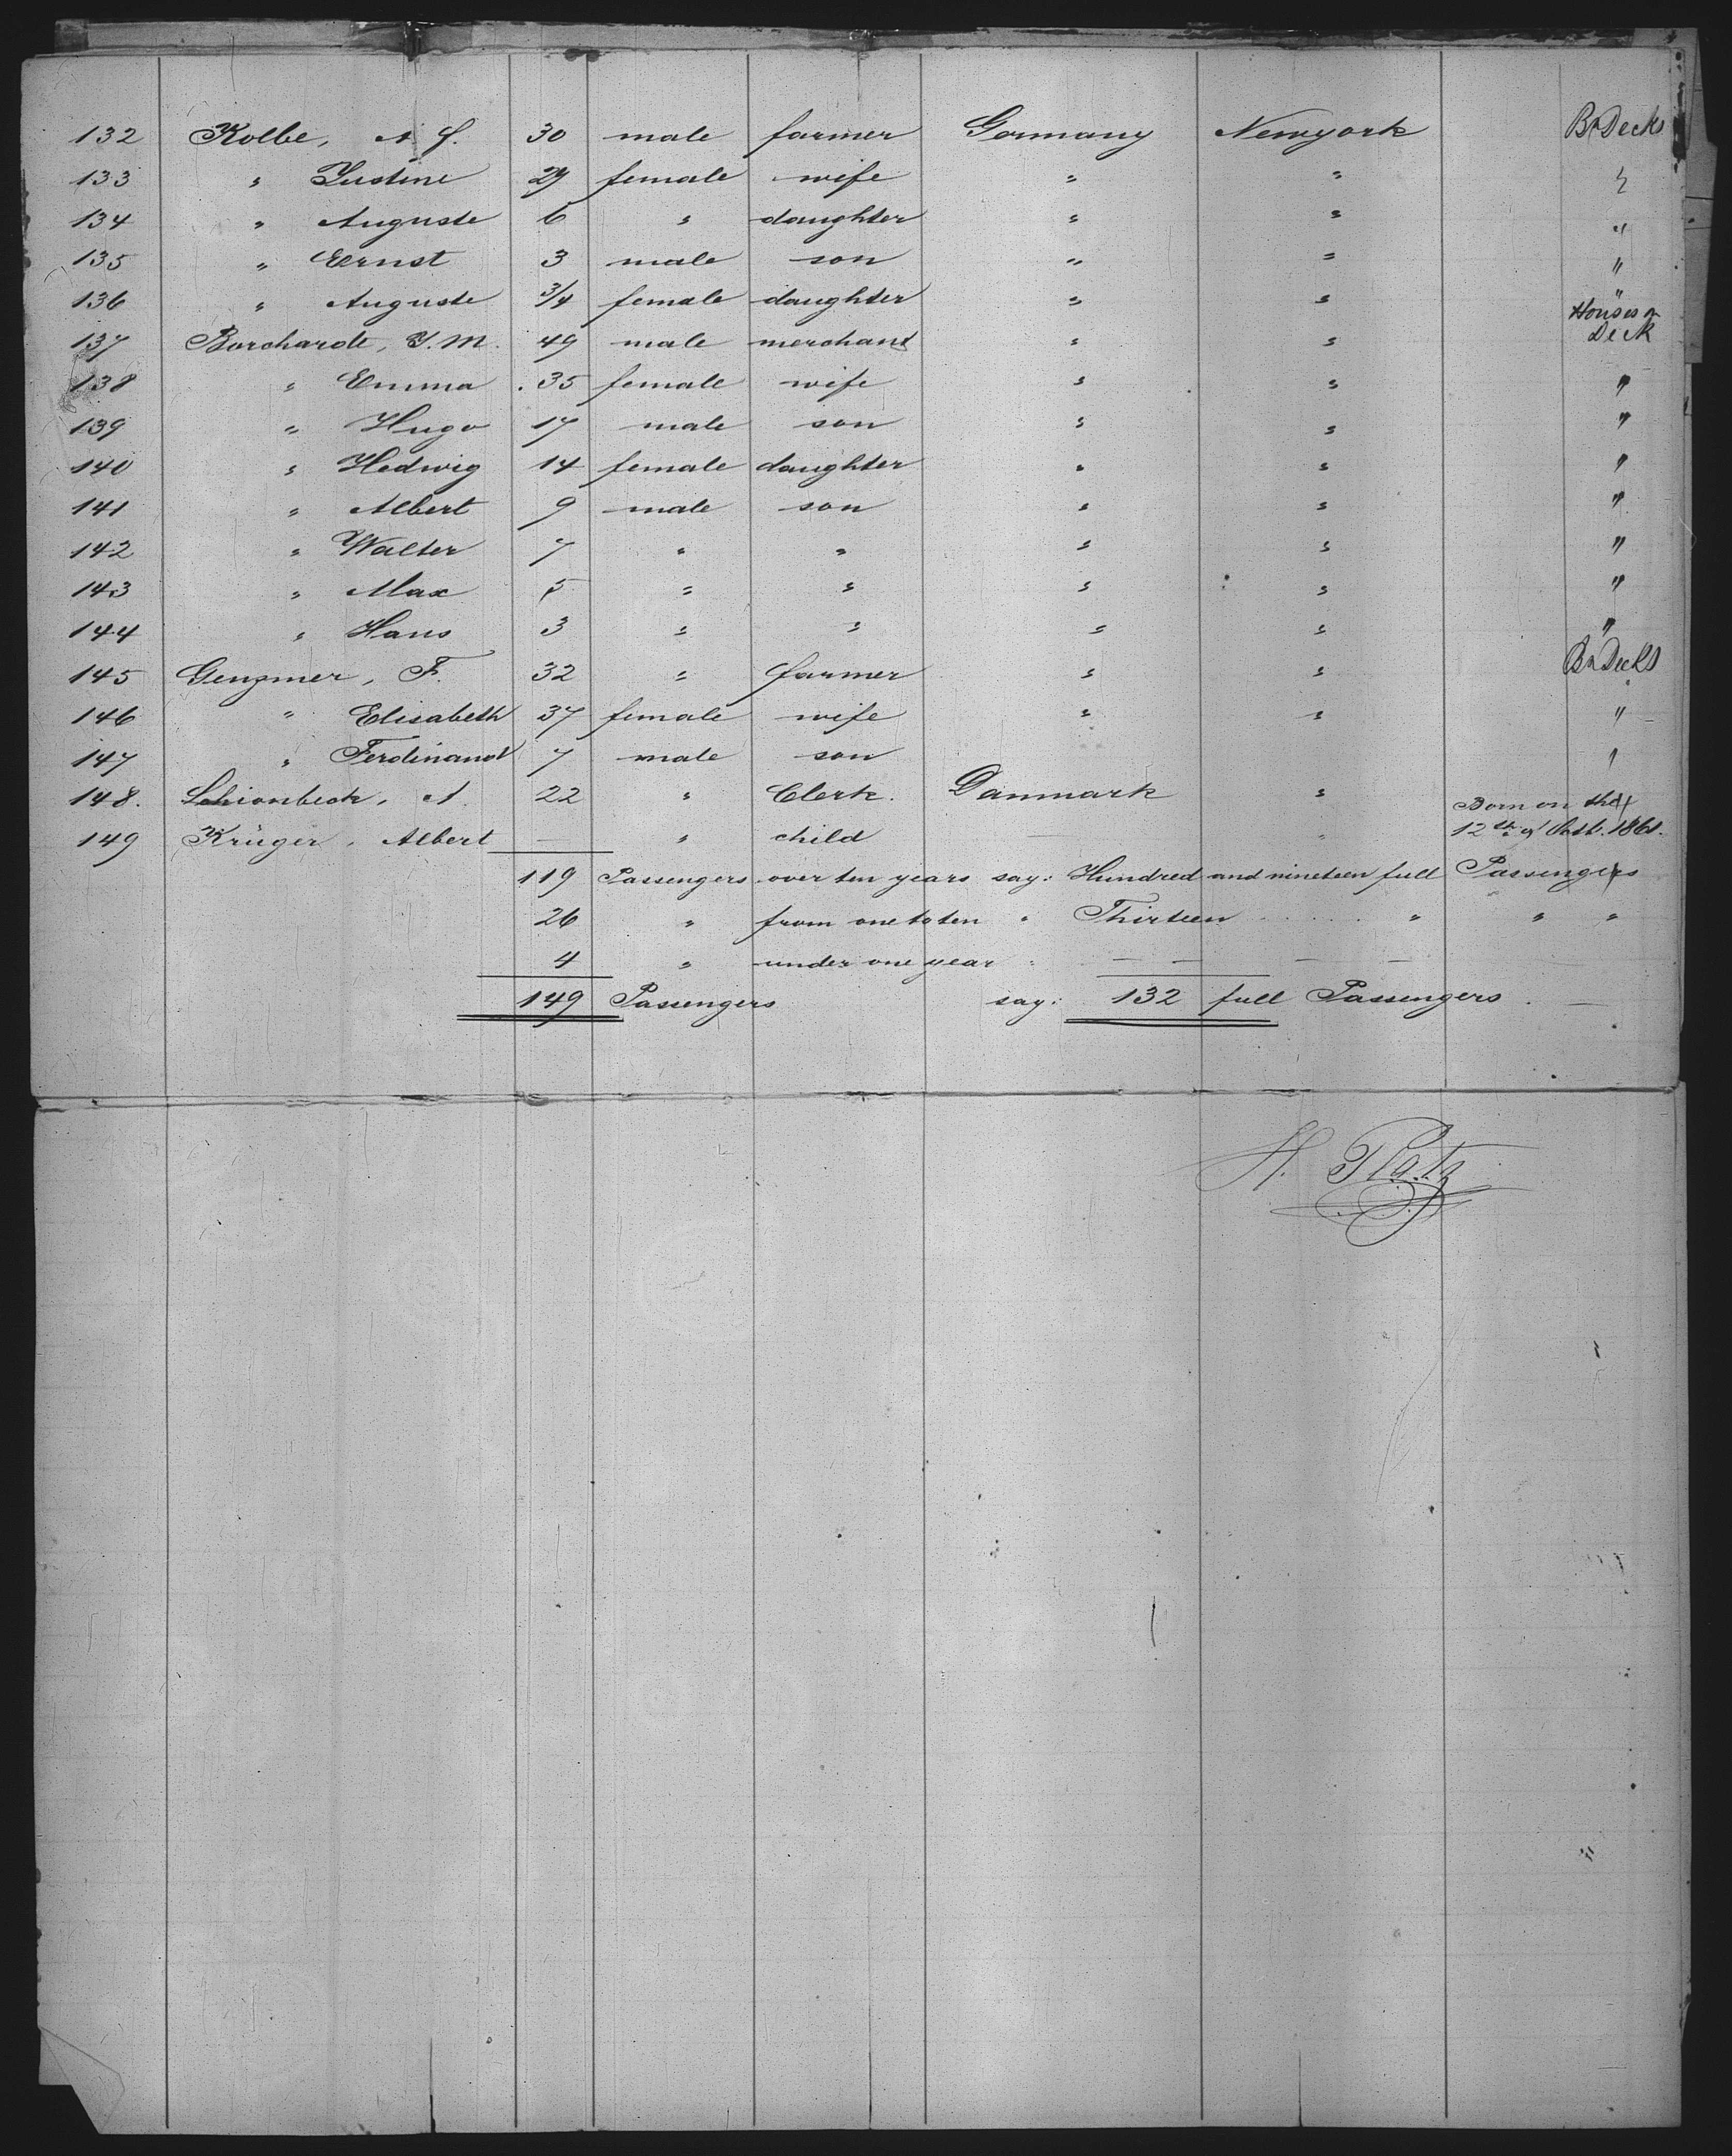 132 Kolbe, A. G. 30 male farmer Germany Newyork Bn Decks
133 " Justine 29 female wife " " "
134 " Auguste 6 " daughter " " "
135 " Ernst 3 male son " " "
136 " Auguste 3/4 female daughter " " "
137 Borchardt, J. M. 49 male merchant " " Houses on Deck
138 " Emma 35 female wife " " "
139 " Hugo 17 male son " " "
140 " Hedwig 14 female daughter " " "
141 " Albert 9 male son " " "
142 " Walter 7 " " " " "
143 " Max 5 " " " " "
144 " Hans 3 " " " " "
145 Genzmer, F. 32 " farmer " " Bn Decks
146 " Elisabeth 37 female wife " " "
147 " Ferdinand 7 male son "
148. Schionbeck, A. 22 " Clerk. Danmark "
149 Krüger, Albert — " child — " Born on the 12th of Octb. 1861.
119 Passengers over ten years say: Hundred and nineteen full Passengers
26 " from one to ten " Thirteen " " "
4 " under one year : — — — —
149 Passengers say: 132 full Passengers.
H. Platz